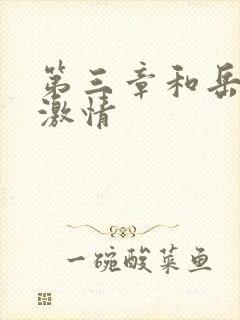 第三章和岳
激情
一碗酸菜鱼